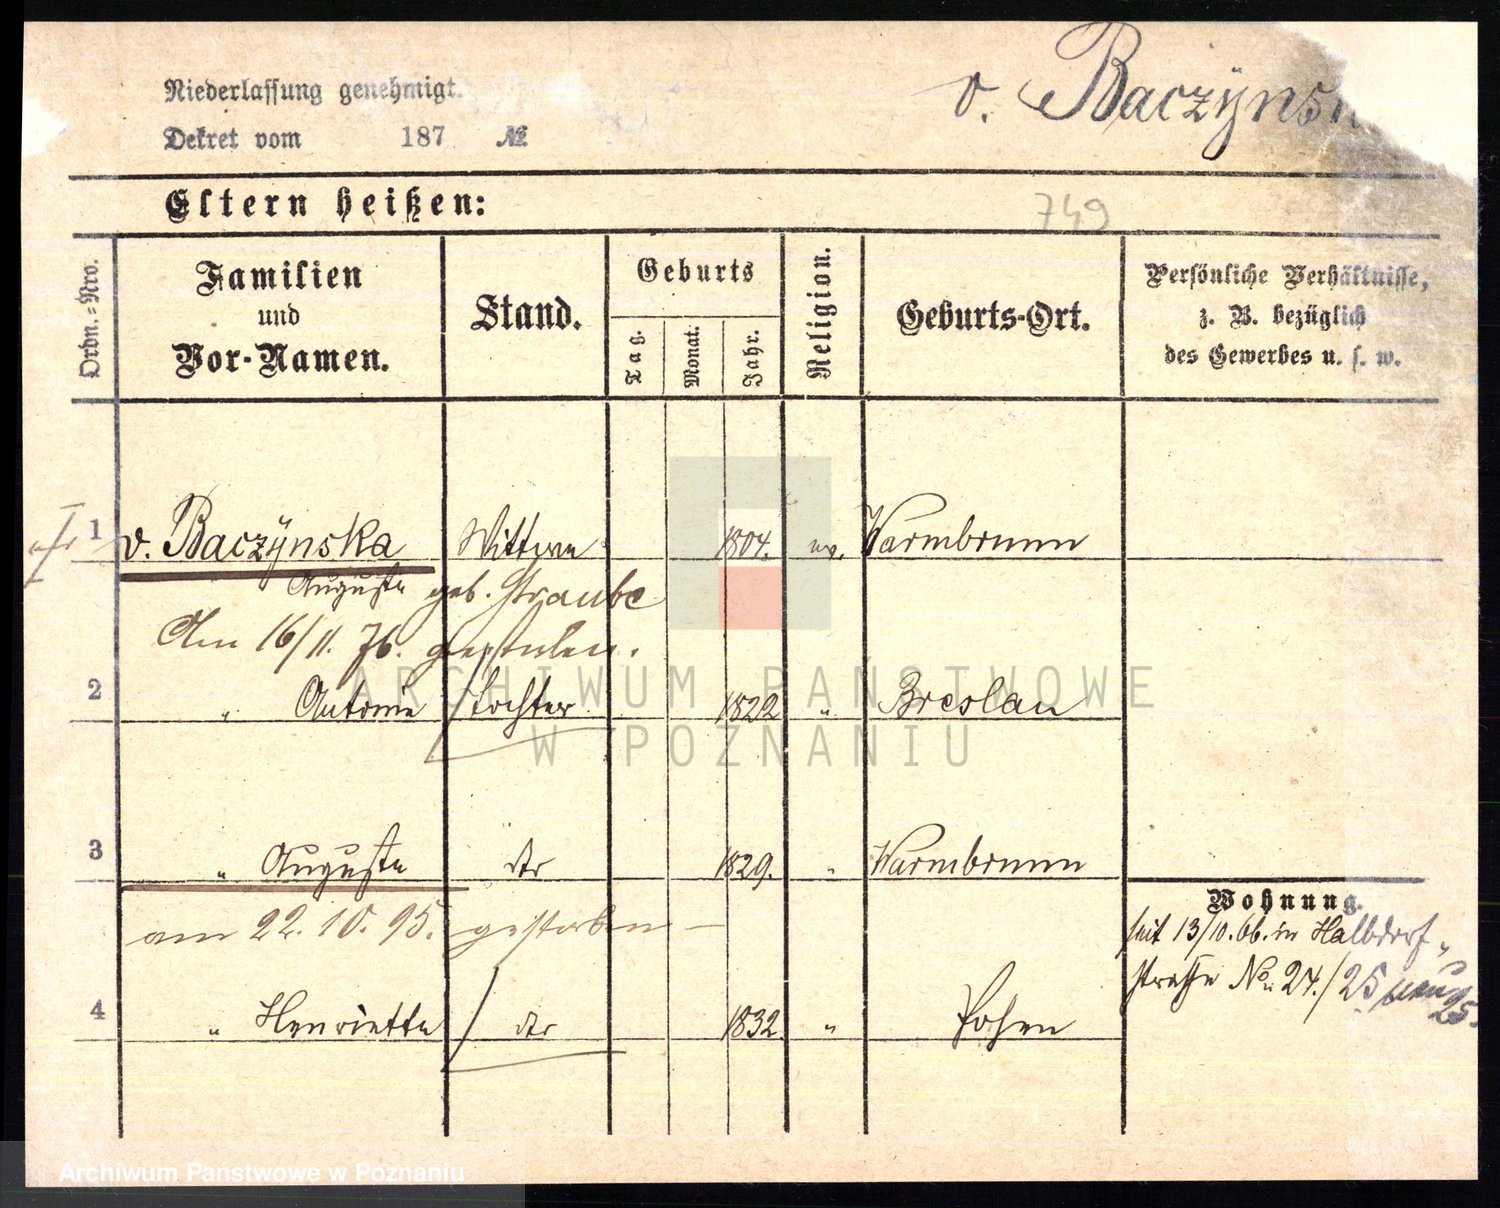 Niederlassung genehmigt.
v. Baczÿnsk
Dekret vom 187 №
Eltern heißen:
749
Ordn.-Nro.
Familien und Vor-Namen.
Stand.
Geburts
Tag.
Monat.
Jahr.
Religion.
Geburts-Ort.
Persönliche Verhältnisse,
z. B. bezüglich
des Gewerbes u. s. w.
1 v. Baczÿnska Wittwe 1804. ev. Warmbrunn
Auguste geb. Straube
Am 16/11. 76. gestorben.
2 " Antonie Tochter 1822 " Breslau
3 " Auguste dto 1829. " Warmbrunn
am 22. 10. 95. gestorben —
Wohnung.
seit 13/10. 66. in Halbdorf-
strasse No 24./25 neu 25.
4 " Henriette dto 1832. " Posen
ARCHIWUM PAŃSTWOWE
W POZNANIU
Archiwum Państwowe w Poznaniu